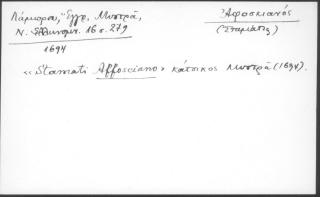 Λάμπρου, Ἔγγρ. Μυστρᾶ,
Ν. Ἑλληνομν. 16 σ. 279
1694
Ἀφοσκιανός
(Σταμάτης)
«Stamati Affosciano» κάτοικος Μυστρᾶ (1694).